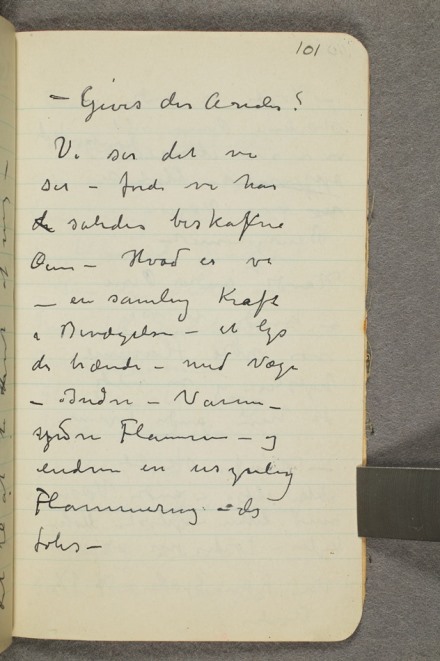 101
– Gives der Aander?
Vi ser det vi
ser – fordi vi har
saledes beskafne
Øine – Hvad er vi
– en samling Kraft
i Bevægelse – et lys
der brænde – med Væge
– Inder – Varme –
ydre Flammen – og
endnu en usynlig
Flammering – der
føles –